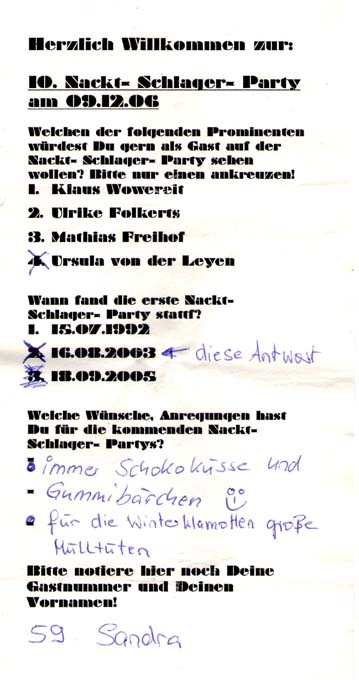 Herzlich Willkommen zur:
10. Nackt- Schlager- Party
am 09.12.06
Welchen der folgenden Prominenten
würdest Du gern als Gast auf der
Nackt- Schlager- Party sehen
wollen? Bitte nur einen ankreuzen!
1. Klaus Wowereit
2. Ulrike Folkerts
3. Mathias Freihof
4. Ursula von der Leyen
Wann fand die erste Nackt-
Schlager- Party statt?
1. 15.07.1992
2. 16.08.2003 ← diese Antwort
3. 18.09.2005
Welche Wünsche, Anregungen hast
Du für die kommenden Nackt-
Schlager- Partys?
- immer Schokoküsse und
- Gummibärchen
• für die Winterklamotten große
Mülltüten
Bitte notiere hier noch Deine
Gastnummer und Deinen
Vornamen!
59 Sandra